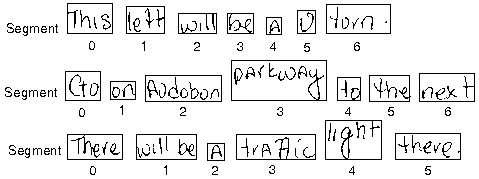 Segment This left will be A U turn.
0 1 2 3 4 5 6
Segment Go on Audobon PARKWAY to the next
0 1 2 3 4 5 6
Segment There will be A trAffic light there.
0 1 2 3 4 5